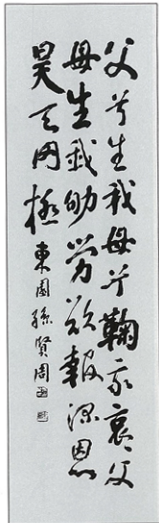 父兮生我母兮鞠我哀哀父
母生我劬勞欲報深恩
昊天罔極 東園孫賢周